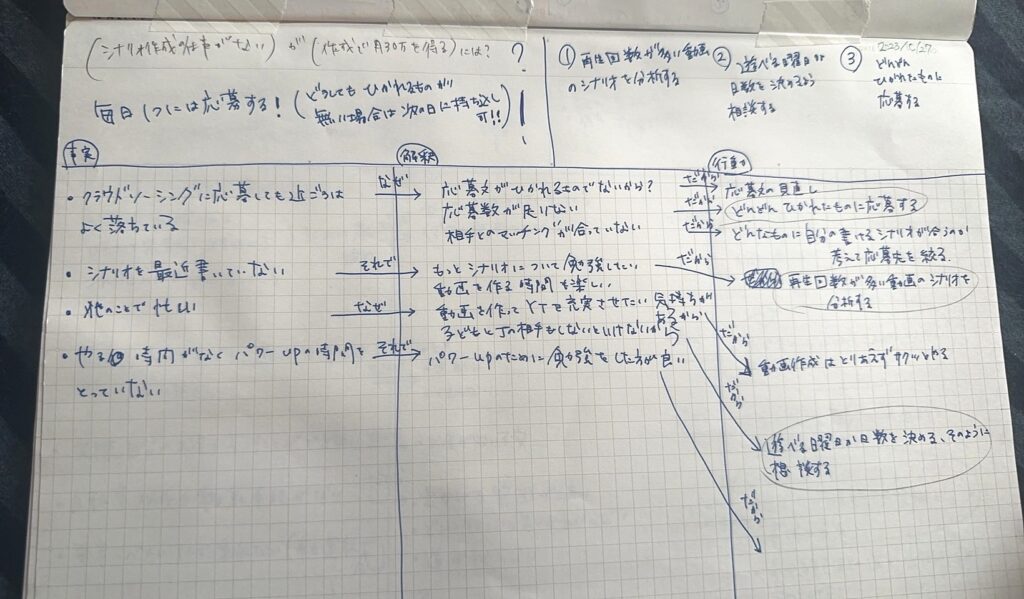 (シナリオ作成の仕事がない)が(作成で月30万を得る)には?
毎日1つには応募する!(どうしてもひかれるものが
無い場合は次の日に持ち越し
可!!)
① 再生回数が多い動画
のシナリオを分析する
② 遊べる曜日か
日数を決めるよう
相談する
③ どんどん
ひかれたものに
応募する
事実
・クラウドソーシングに応募しても近ごろは
よく落ちている
・シナリオを最近書いていない
・他のことで忙しい
・やる 時間がなくパワーupの時間を
とっていない
なぜ
それで
なぜ
それで
解釈
応募文がひかれるものでないから?
応募数が足りない
相手とのマッチングが合っていない
もっとシナリオについて勉強したい
動画を作る時間も楽しい
動画を作ってYTを充実させたい気持ちが
あるから
子どもと の相手もしないといけないから
パワーupのために勉強をした方が良い
だから
だから
だから
だから
だから
だから
だから
行動
応募文の見直し
どんどんひかれたものに応募する
どんなものに自分の書けるシナリオが合うのか
考えて応募先を絞る.
再生回数が多い動画のシナリオを
分析する
動画作成はとりあえずサクッとやる
遊べる曜日か日数を決める、そのように
相談する